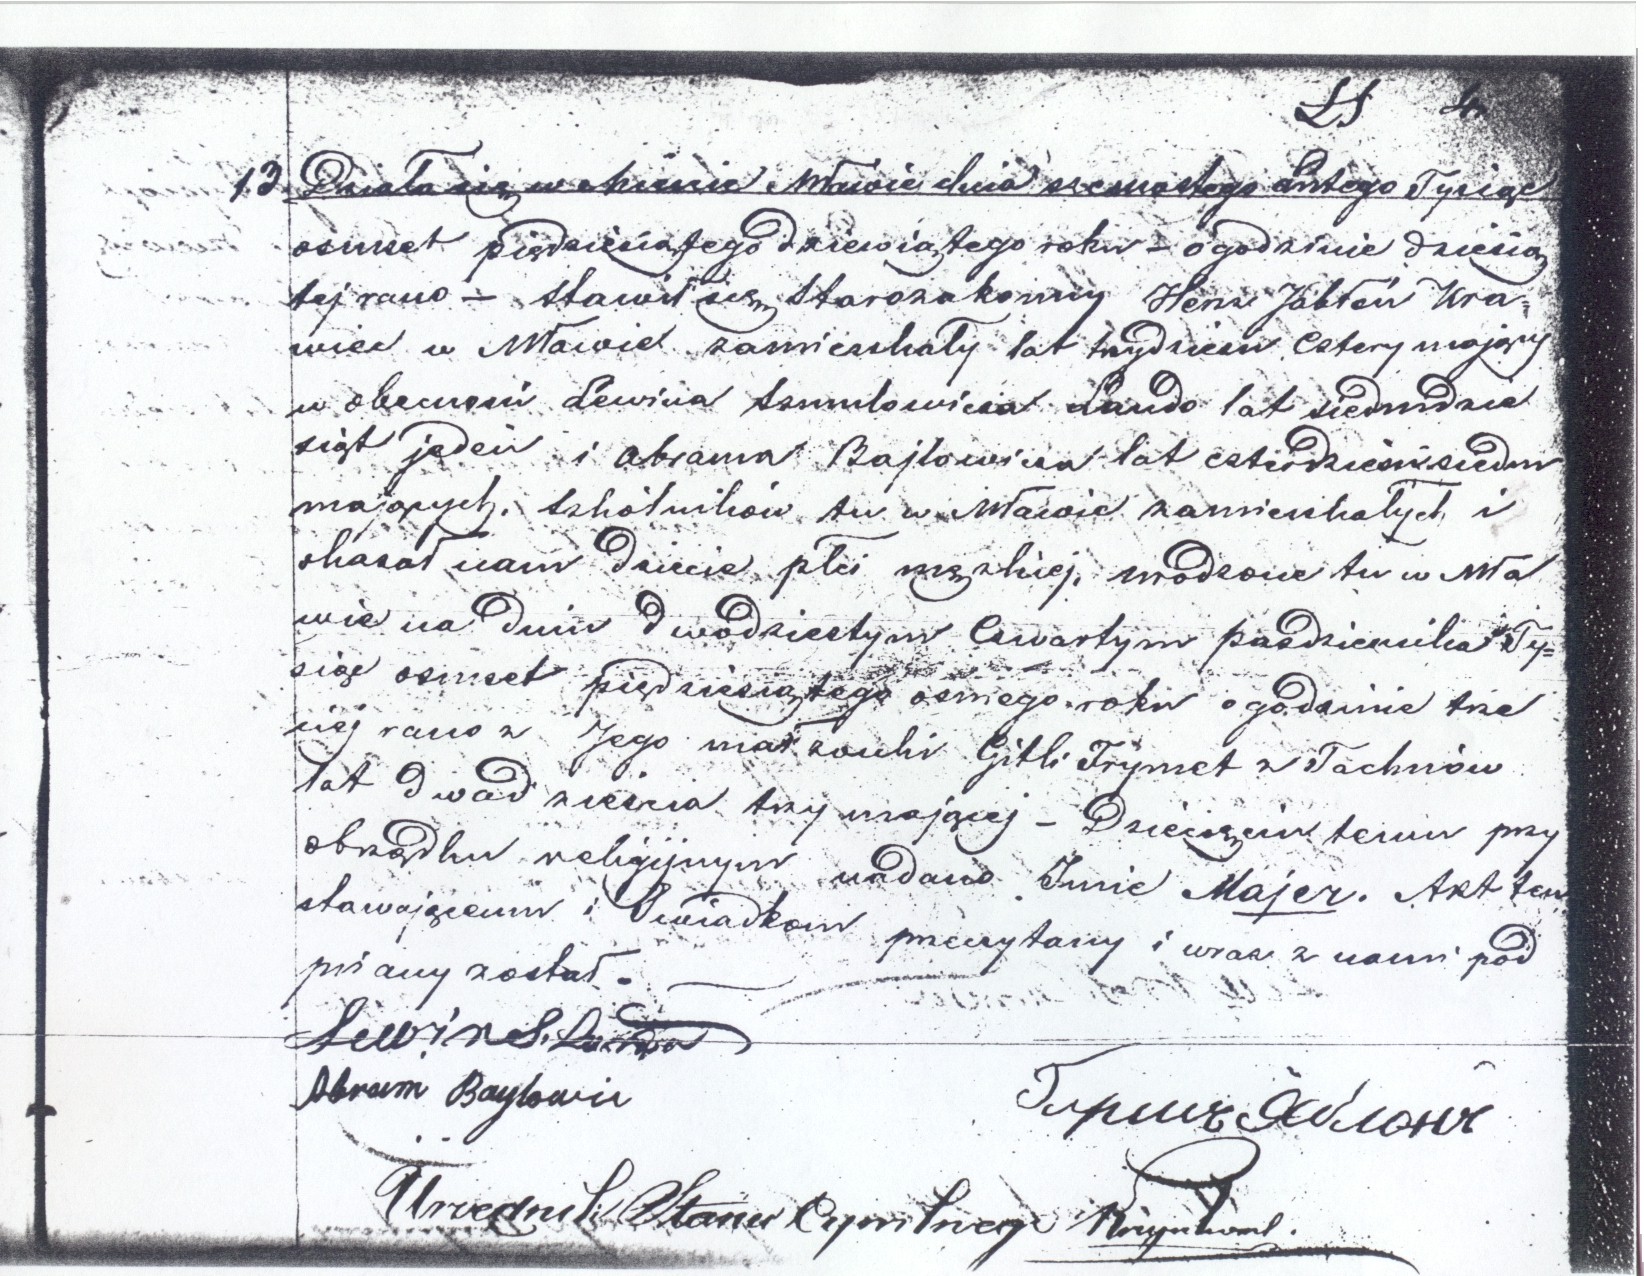 LS 4.
13. Działo się w mieście Mławie dnia szesnastego Lutego Tysiąc
osmset piędziesiątego dziewiątego roku – o godzinie dziesią
tej rano – Stawił się Starozakonny Hersz Jabłoń Kra=
wiec w Mławie zamieszkały lat trzydzieści cztery mający
w obecności Lewina Szmulowicza Lando lat siedmdzie
siąt jeden i Abrama Bajlowicza lat czterdzieści siedm
mających, Szkólników tu w Mławie zamieszkałych i
okazał nam Dziecię płci męzkiej, urodzone tu w Mła
wie na dniu dwódziestym czwartym pazdziernika Ty=
siąc osmset pięдziesiątego osmego roku o godzinie trze
ciej rano z Jego małżonki Gitli Frymet z Tachnów
lat dwadzieścia trzy mającej – Dziecięciu temu przy
obrządku religijnym nadano Imie Majer. Akt ten
stawającemu i Swiadkom przeczytany i wraz z nami pod
pisany został.
Lewin S.
Abram Baylowic
Гершъ Яблонь
Urzednik Stanu Cywilnego